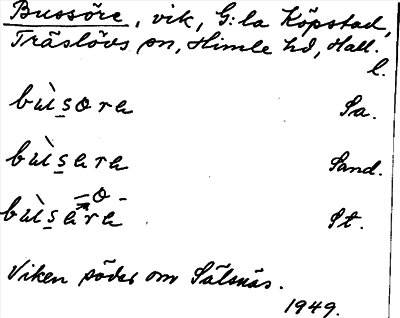 Bussöre, vik, G:la Köpstad,
Träslövs sn, Himle hd, Hall.
l.
bùsora Sa.
bùsara Sand.
bùsara -o- St.
Viken söder om Sälsnäs.
1949.